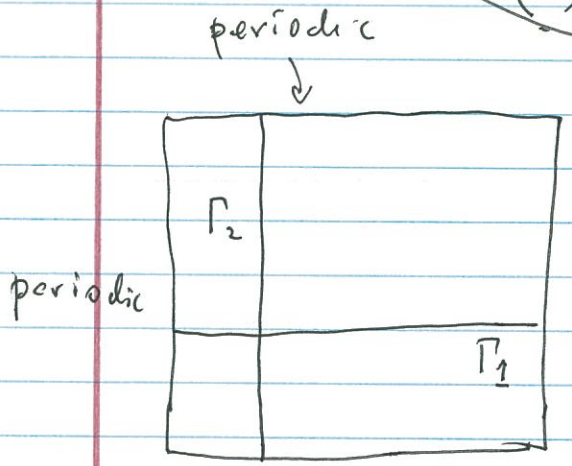 periodic
Γ₂
periodic
Γ₁